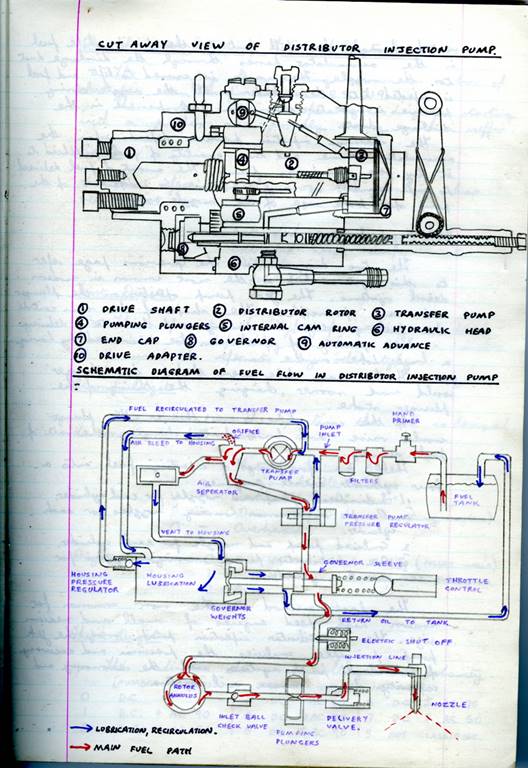 CUT AWAY VIEW OF DISTRIBUTOR INJECTION PUMP.
① DRIVE SHAFT ② DISTRIBUTOR ROTOR ③ TRANSFER PUMP
④ PUMPING PLUNGERS ⑤ INTERNAL CAM RING ⑥ HYDRAULIC HEAD
⑦ END CAP ⑧ GOVERNOR ⑨ AUTOMATIC ADVANCE
⑩ DRIVE ADAPTER.
SCHEMATIC DIAGRAM OF FUEL FLOW IN DISTRIBUTOR INJECTION PUMP
FUEL RECIRCULATED TO TRANSFER PUMP
HAND
PRIMER
ORIFICE
PUMP
INLET
AIR BLEED TO HOUSING
TRANSFER
PUMP
FILTERS
AIR
SEPERATOR
FUEL
TANK
TRANSFER PUMP
PRESSURE REGULATOR
VENT TO HOUSING
GOVERNOR SLEEVE
HOUSING
PRESSURE
REGULATOR
HOUSING
LUBRICATION
THROTTLE
CONTROL
GOVERNOR
WEIGHTS
RETURN OIL TO TANK
ELECTRIC SHUT OFF
INJECTION LINE
ROTOR
ANNULUS
NOZZLE
INLET BALL
CHECK VALVE
DELIVERY
VALVE.
PUMPING
PLUNGERS
LUBRICATION, RECIRCULATION.
MAIN FUEL PATH